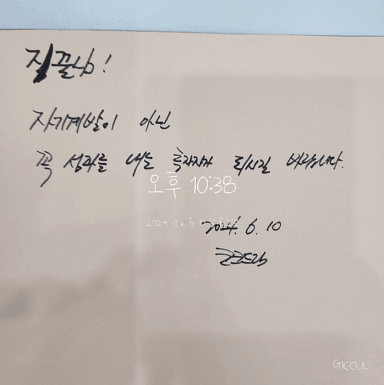 지꿀님!
자기계발이 아닌
꼭 성과를 내는 투자자가 되시길 바랍니다.
오후 10:38
2024. 6. 10
GICCUL